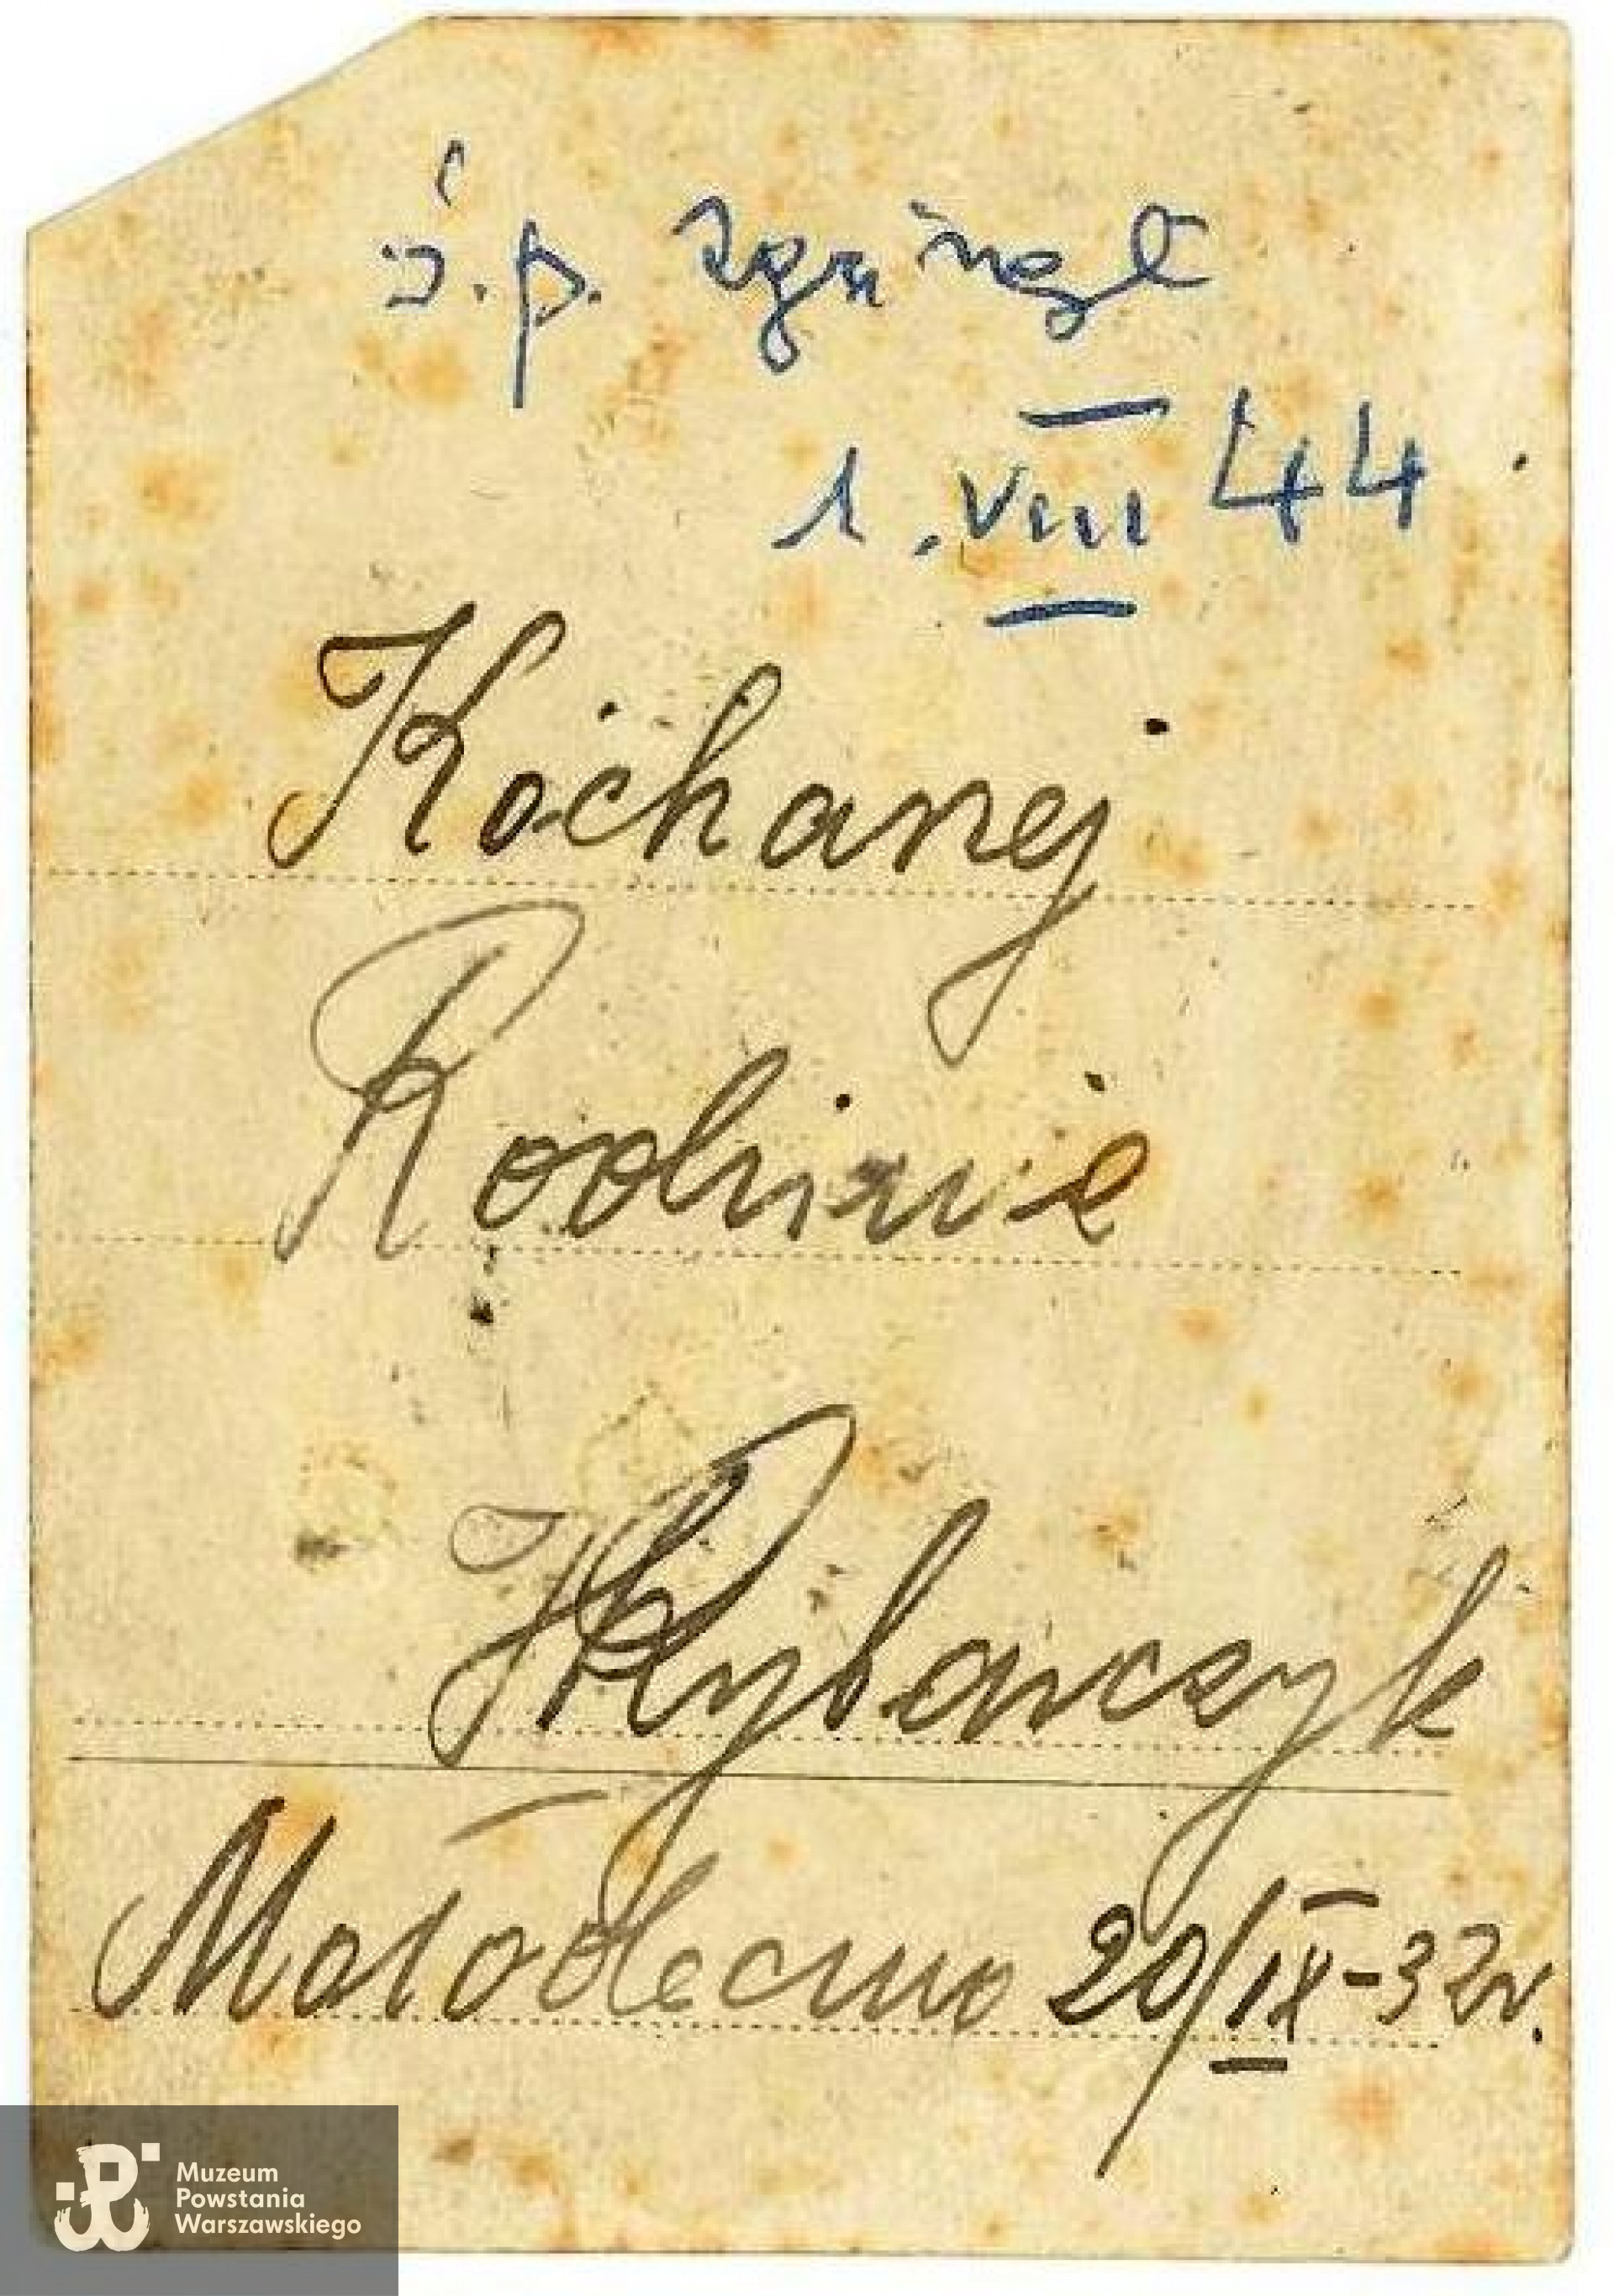 ś.p. zginął
1.VIII 44.
Kochanej
Rodzinie
HRybarczyk
Mołodeczno 20/IX-32r.
Muzeum
Powstania
Warszawskiego